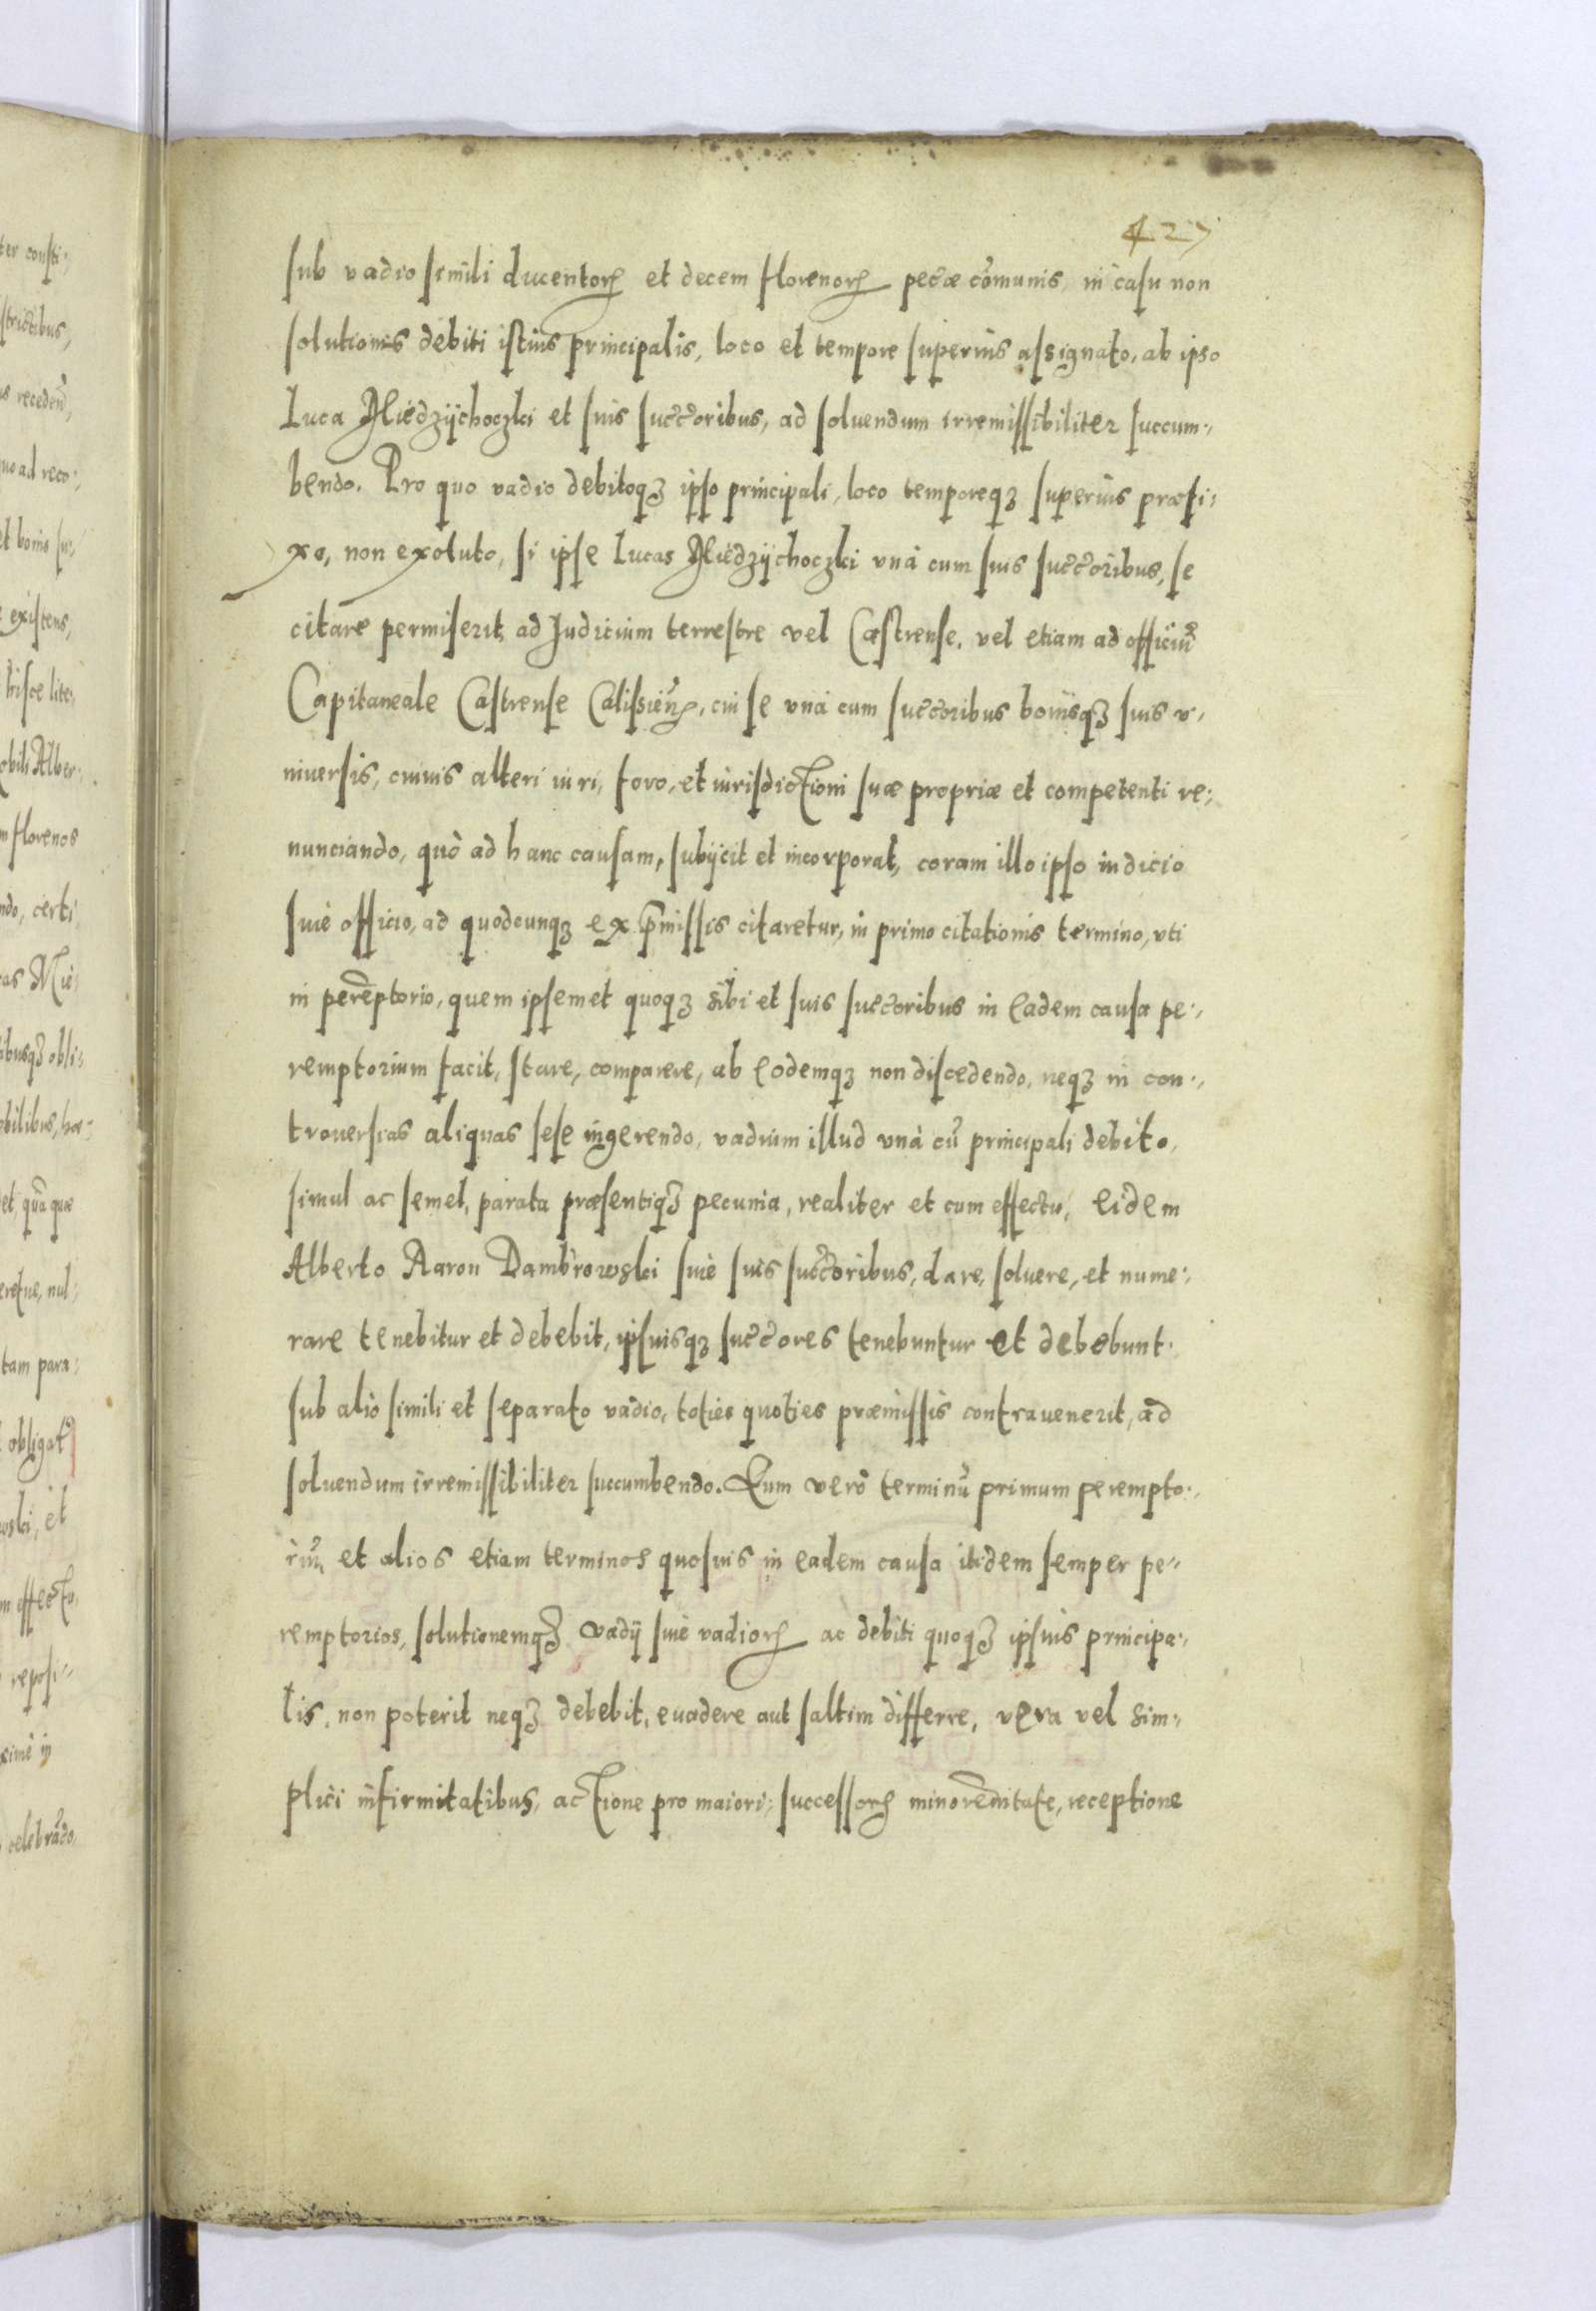 427
sub vadio simili ducentorꝝ et decem florenorꝝ pecũæ cõmunis, in casu non
solutionis debiti istius principalis, loco et tempore superius assignato, ab ipso
Luca Międzÿchoczki et suis succ̃oribus, ad soluendum irremissibiliter succum-
bendo. Pro quo vadio debitoqꝫ ipso principali, loco temporeqꝫ superius præfi-
xo, non exoluto, si ipse Lucas Międzÿchoczki vnà cum suis succ̃oribus, se
citare permiserit, ad Judicium terrestre vel Castrense, vel etiam ad officiũ
Capitaneale Castrense Calissien̄, cui se vnà cum succ̃oribus bonisqꝫ suis v-
niuersis, omnis alteri iuri, foro, et iurisdictioni suæ propriæ et competenti re-
nunciando, quò ad hanc causam, subijcit et incorporat, coram illo ipso iudicio
siue officio, ad quodcunqꝫ ex p̄missis citaretur, in primo citationis termino, vti
in perẽptorio, quem ipsemet quoqꝫ sibi et suis succ̃oribus in eadem causa pe-
remptorium facit, stare, comparere, ab eodemqꝫ non discedendo, neqꝫ in con-
trouersias aliquas sese ingerendo, vadium illud vnà cũ principali debito,
simul ac semel, parata præsentiqꝫ pecunia, realiter et cum effectu, eidem
Alberto Aaron Dambrowski siue suis succ̃oribus, dare, soluere, et nume-
rare tenebitur et debebit, ipsuisqꝫ succ̃ores tenebuntur et debebunt.
sub alio simili et separato vadio, toties quoties præmissis contrauenerit, ad
soluendum irremissibiliter succumbendo. Eum verò terminũ primum perempto-
riũ, et alios etiam terminos quosuis in eadem causa itidem semper pe-
remptorios, solutionemqꝫ vadij siue vadiorꝝ ac debiti quoqꝫ ipsius principa-
lis, non poterit neqꝫ debebit, euadere aut saltim differre, vera vel sim-
plici infirmitatibus, actione pro maiori, successorꝝ minorẽnitate, receptione